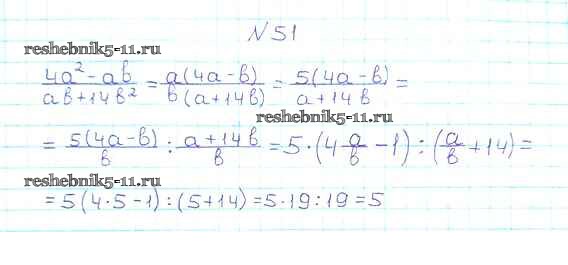 N51
reshebnik5-11.ru
(4a² - ab)/(ab + 14b²) = a(4a - b)/b(a + 14b) = 5(4a - b)/(a + 14b) =
reshebnik5-11.ru
= 5(4a - b)/b : (a + 14b)/b = 5 · (4 a/b - 1) : (a/b + 14) =
reshebnik5-11.ru
= 5(4·5 - 1) : (5 + 14) = 5·19 : 19 = 5